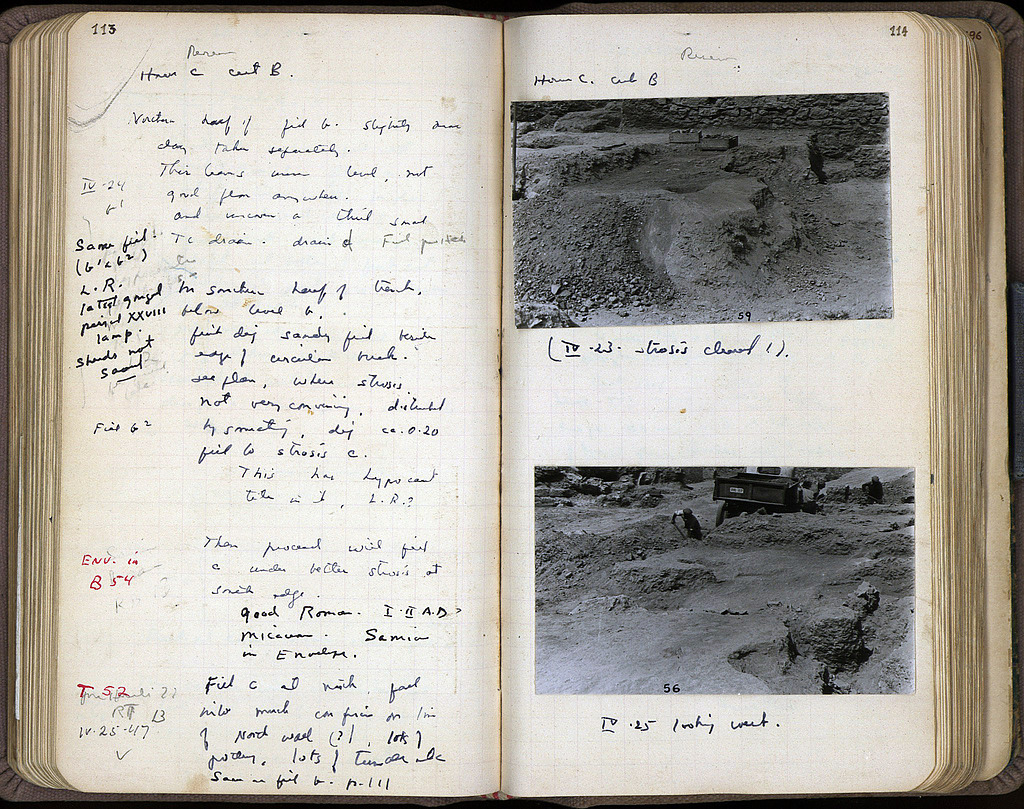 113
House C cut B.
Northern half of fill b. slightly more
clay taken separately.
This leaves uneven level, not
good floor anywhere.
and uncover a third small
TC drain. drain of
IV-24
b'
Same fill!
(b' & b²)
L.R.
latest
period XXVIII
lamp.
sherds not
saved
In southern half of trench,
below level b,
first dig sandy fill
edge of circular
see plan, where strosis
not very convincing, disturbed
by something, dig ca. 0.20
fill to strosis c.
Fill b²
This has hypocaust
tile in it, L.R.?
ENV. in
B 54
Then proceed with fill
c under better strosis at
south edge.
good Roman. I-II A.D?
micaceous. Samian
in Envelope.
T 52
B
IV-25-47
Fill c at north, full
into much confusion on line
of North wall (?), lots of
pottery, lots of
Same as fill b. p. 111
114
House C. cut B
59
(IV-23 strosis cleared!).
56
IV-25 looking west.
96